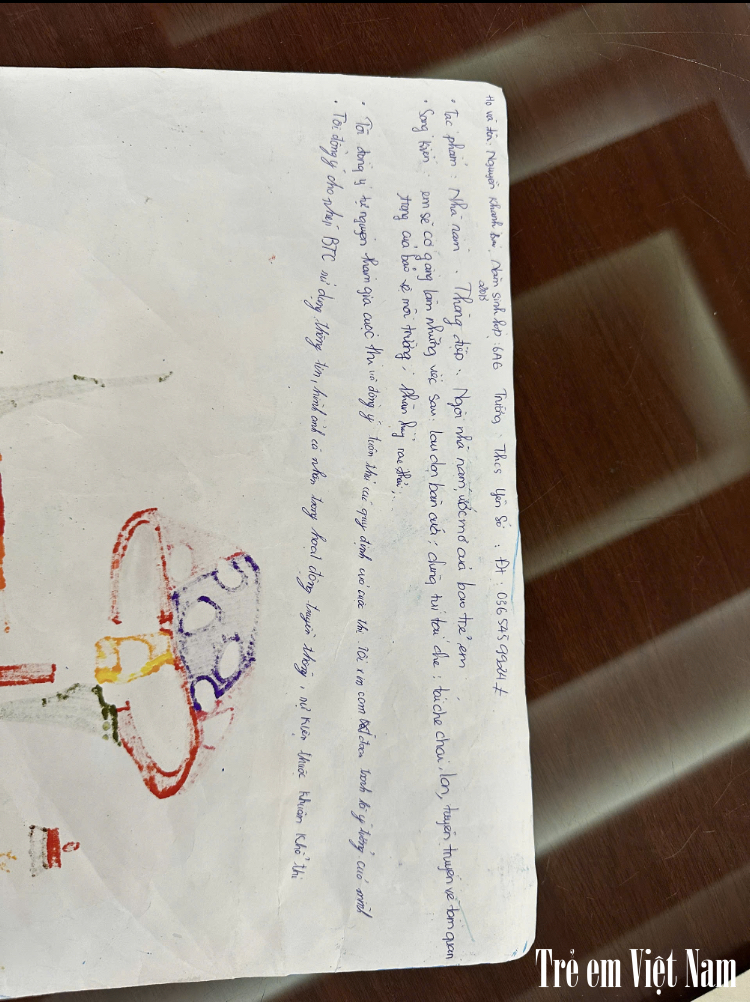 Họ và tên: Nguyễn Khánh Năm sinh 2013 lớp: 6A6 Trường: Thcs Yên Sở. Đt: 0365459924
• Tác phẩm: Nhà nấm. Thông điệp: Ngôi nhà nấm ước mơ của bao trẻ em.
• Sáng kiến: em sẽ cố gắng làm những việc sau: lau dọn bàn ; dùng túi tái chế; tái chế chai, lon, tuyên truyền về tầm quan
trọng của bảo vệ môi trường; phân loại rác thải;..
• Tôi đồng ý tự nguyện tham gia cuộc thi và đồng ý tuân thủ các quy định của cuộc thi. Tôi xin cam đoan tranh là ý tưởng của mình
• Tôi đồng ý cho phép BTC sử dụng thông tin, hình ảnh cá nhân trong hoạt động truyền thông, sự kiện thuộc khuôn khổ thi
Trẻ em Việt Nam